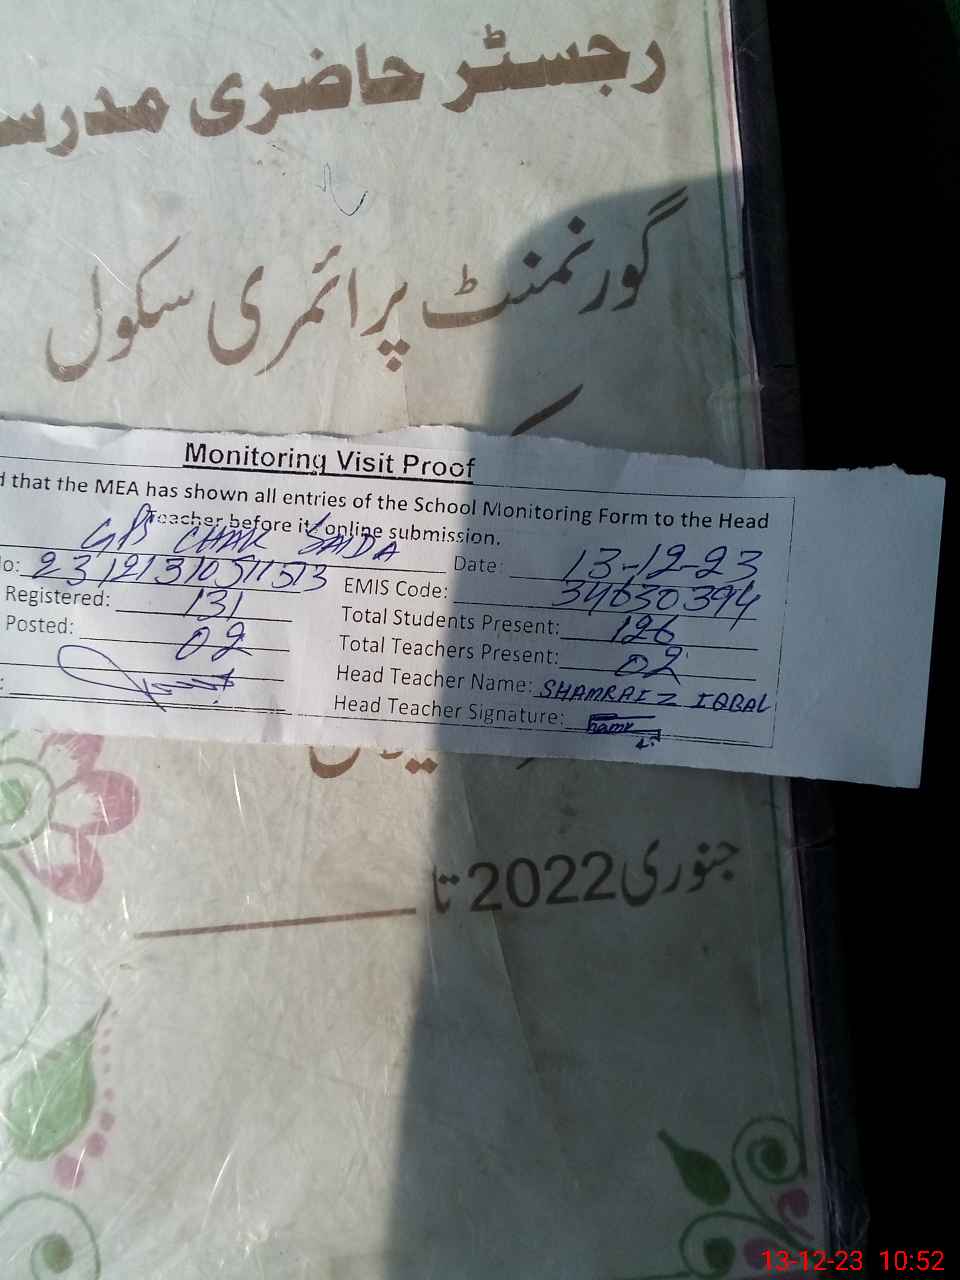 رجسٹر حاضری مدرسہ
گورنمنٹ پرائمری سکول
Monitoring Visit Proof
d that the MEA has shown all entries of the School Monitoring Form to the Head
Teacher before it online submission.
GPS CHAK SAIDA Date: 13-12-23
No: EMIS Code: 34630394
Registered: 131 Total Students Present: 126
Posted: 02 Total Teachers Present: 02
Head Teacher Name: SHAMRAIZ IQBAL
: Head Teacher Signature:
جنوری 2022 تا
13-12-23 10:52